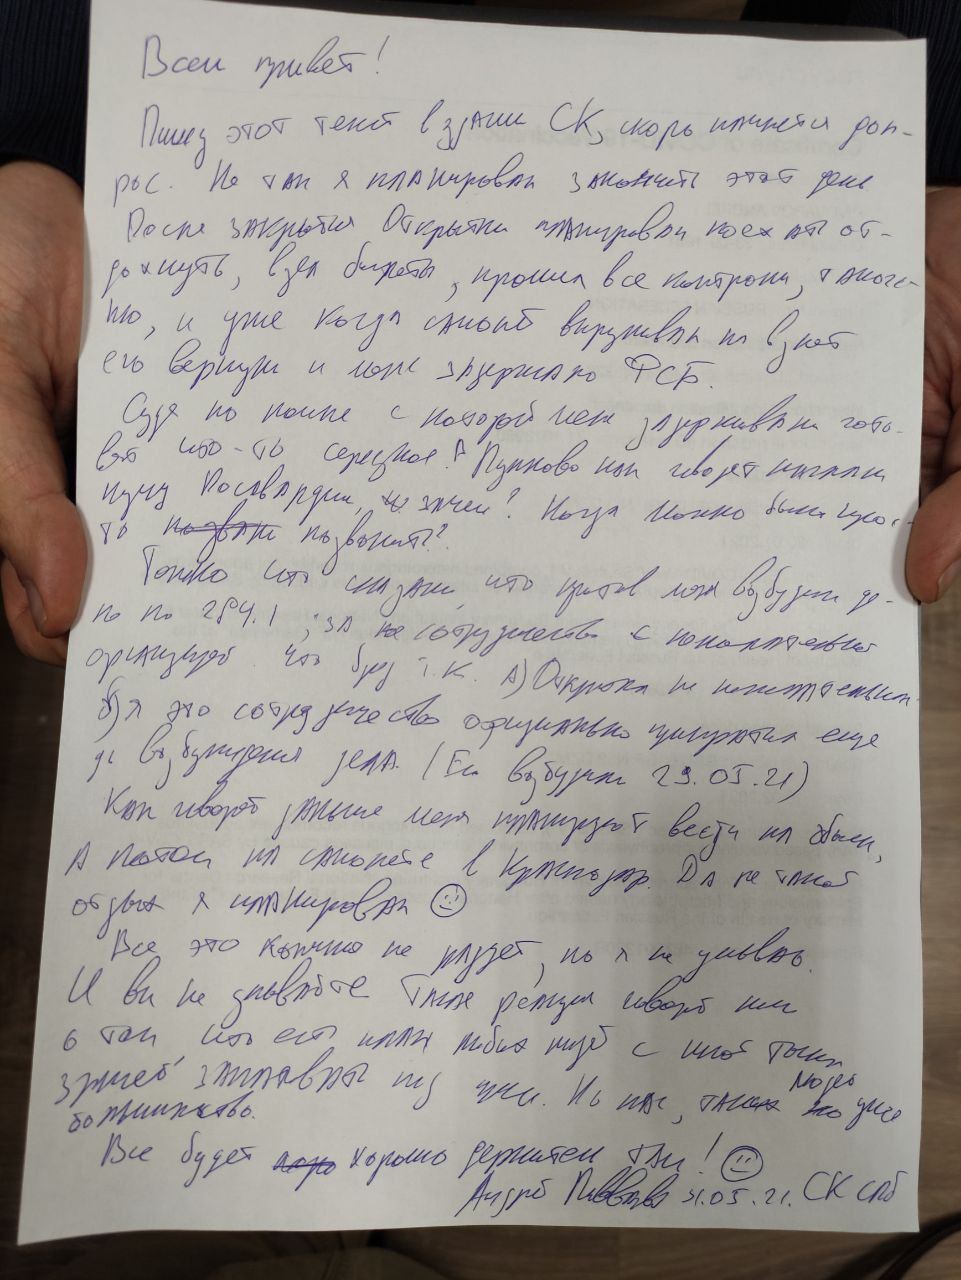 Всем привет!
Пишу этот текст в здании СК, скоро начнется доп-
рос. Не так я планировал закончить этот день
После закрытия Открытки планировал поехать от-
дохнуть, взял билеты, прошел все контроли, таможе-
ню, и уже когда самолет выруливал на взлет
его вернули и меня задержало ФСБ.
Судя по помпе с которой меня задерживали гото-
вят что-то серьезное. В Пулково как говорят нагнали
кучу Росгвардии, зачем? Когда можно было прос-
то позвонить?
Только что сказали, что против меня возбудили де-
ло по 284.1, за сотрудничество с нежелательной
организацией. Что бред т.к. А) Открытка не нежелательная
б) я это сотрудничество официально прекратил еще
до возбуждения дела. (Его возбудили 29.05.21)
Как говорят дальше меня планируют везти на обыск,
А потом на самолете в Краснодар. Да не такой
отдых я планировал ☺
Все это конечно не радует, но я не унываю.
И вы не унывайте Такая реакция говорит нам
о том что есть план любых людей с иной точкой
зрения запаковать под уши. Но нас, таких людей уже
большинство.
Все будет хорошо держитесь там! ☺
Андрей Пивоваров 31.05.21. СК СПб